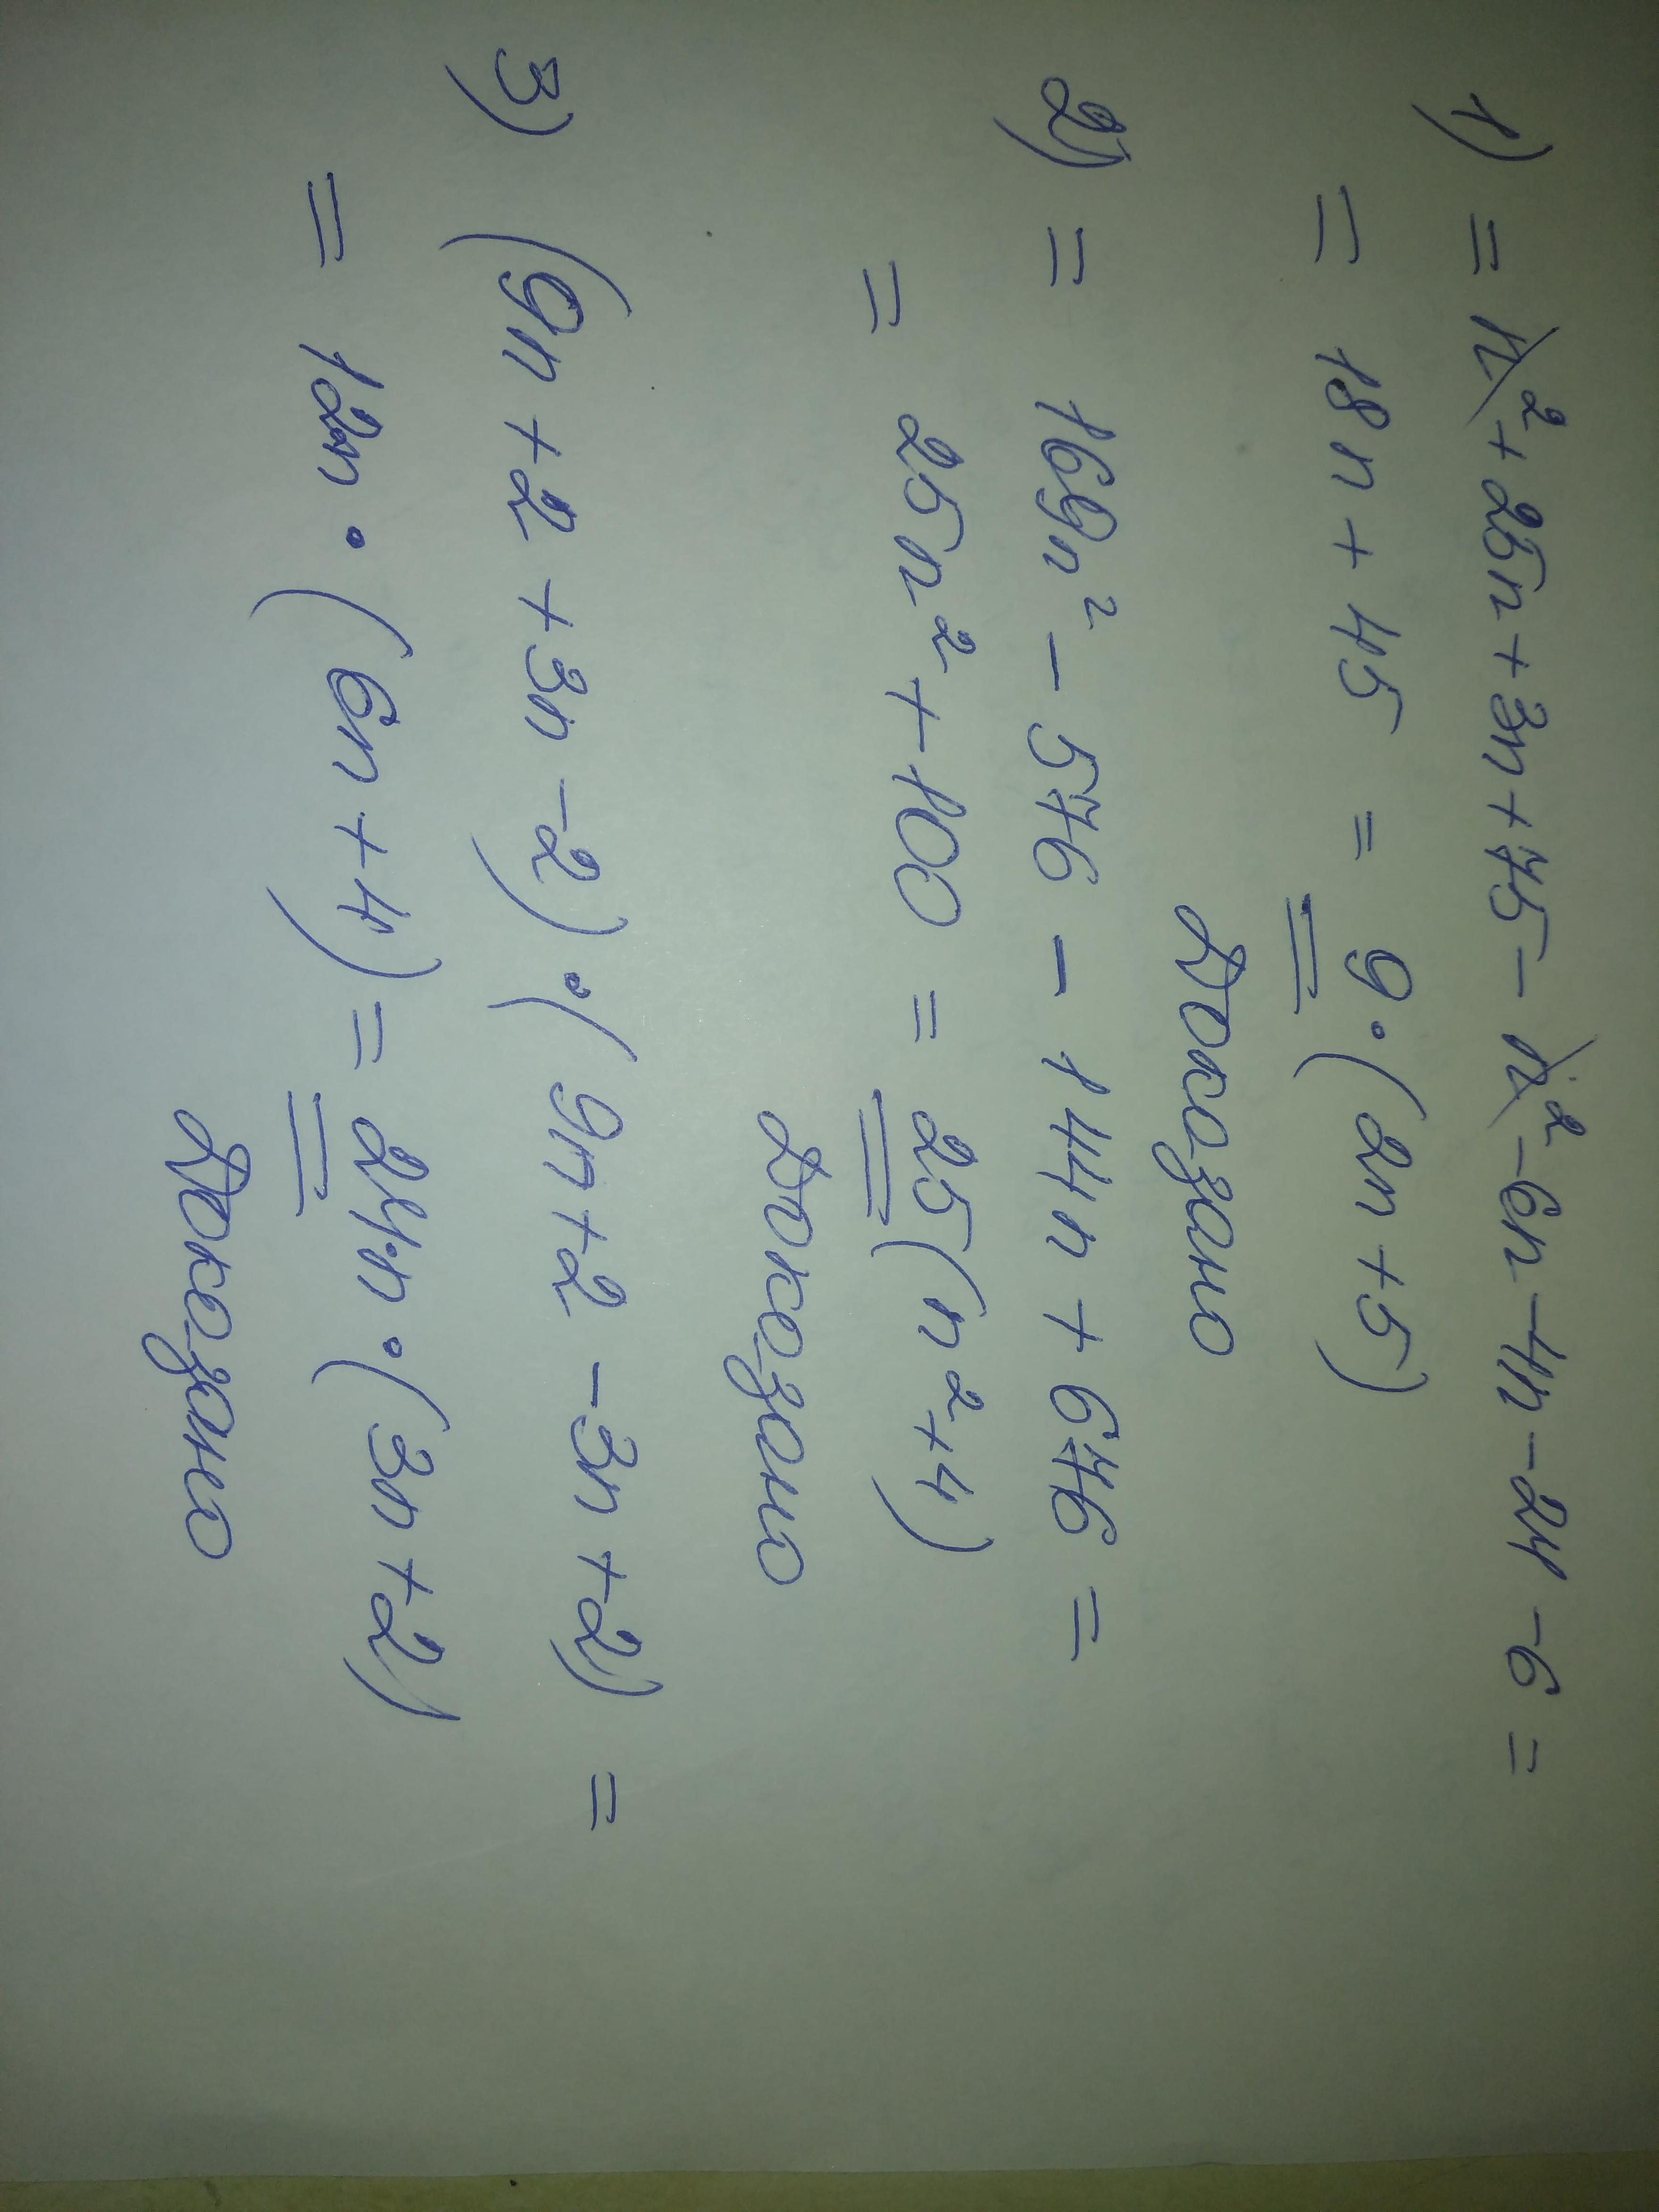 1) = n² + 25n + 3n + 75 - n² - 6n - 4n - 24 - 6 =
= 18n + 45 = 9·(2n + 5)
Доказано
2) = 169n² - 576 - 144n + 676 =
= 25n² + 100 = 25(n² + 4)
Доказано
3) (9n + 2 + 3n - 2)·(9n + 2 - 3n + 2) =
= 12n·(6n + 4) = 24n·(3n + 2)
Доказано